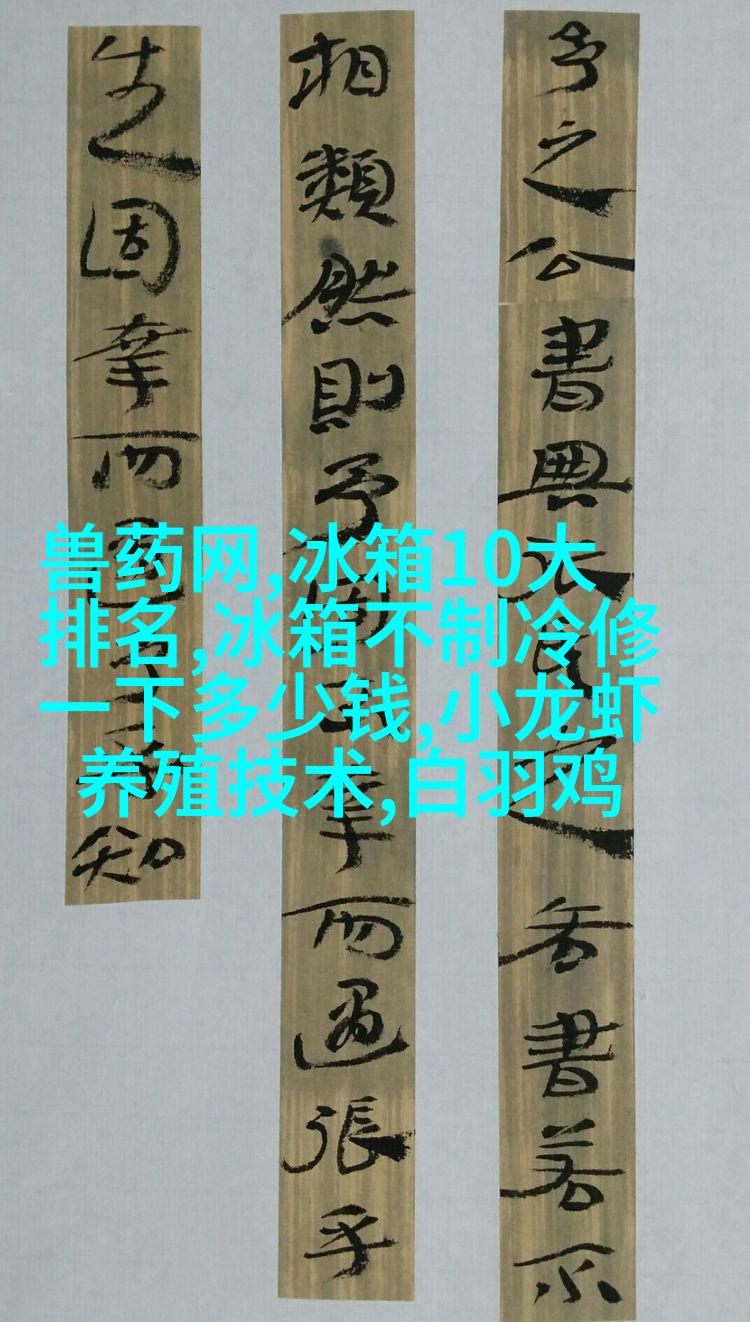 之公書與張之書若不
相類然則予幸而遇張乎
生固幸而遇知
兽药网,冰箱10大
排名,冰箱不制冷修
一下多少钱,小龙虾
养殖技术,白羽鸡